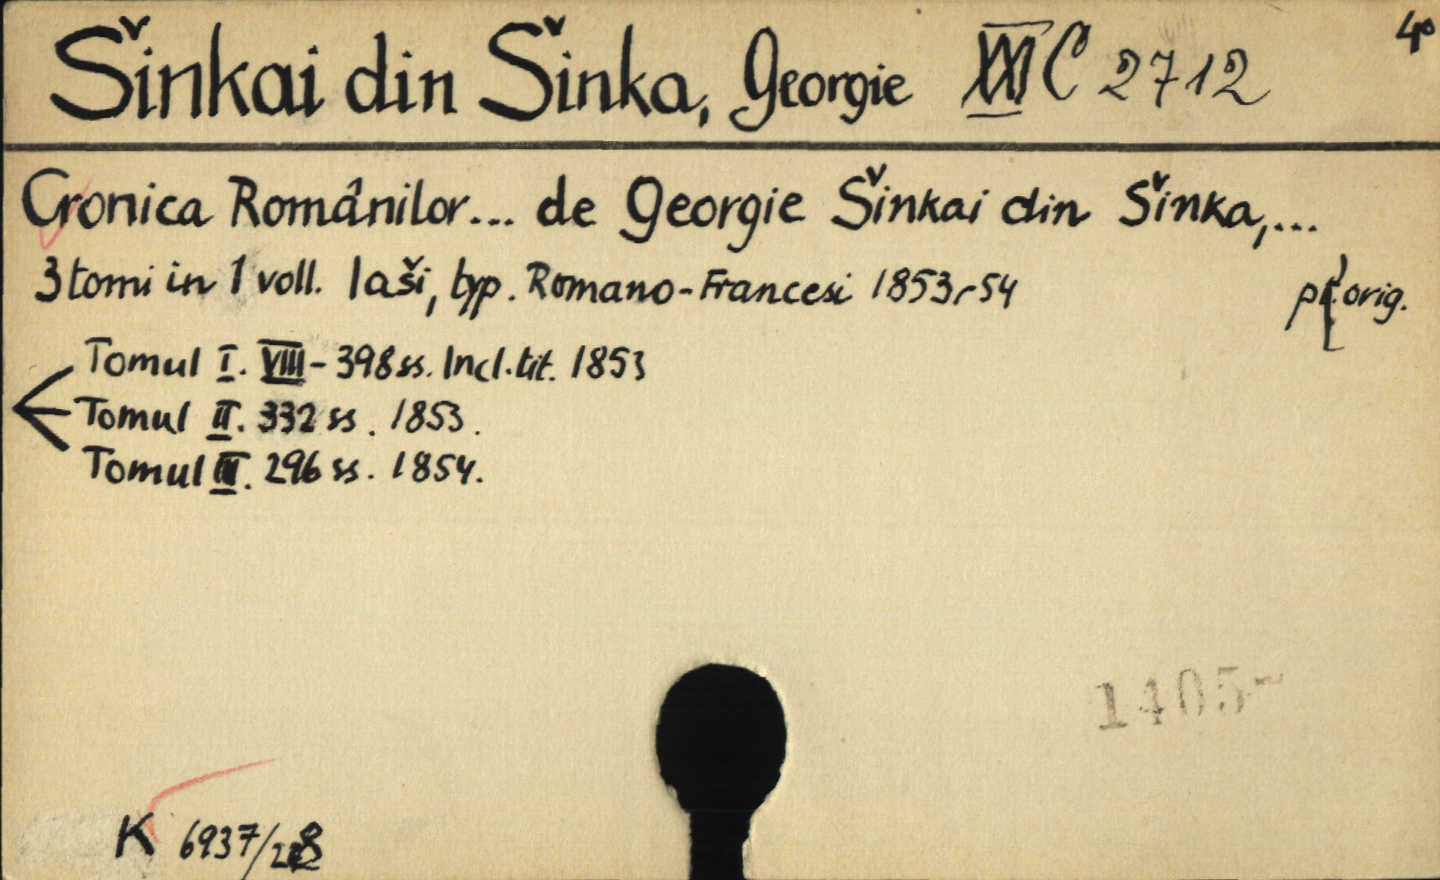 Šinkai din Šinka, Georgie XXI C 2712 4°
Cronica Românilor... de Georgie Šinkai din Šinka,...
3 tomi in 1 voll. Iaši, typ. Romano-Francesi 1853-54 orig.
Tomul I. VIII - 398 ss. Incl. tit. 1853
Tomul II. 332 ss. 1853.
Tomul III. 296 ss. 1854.
1405-
K 6937/